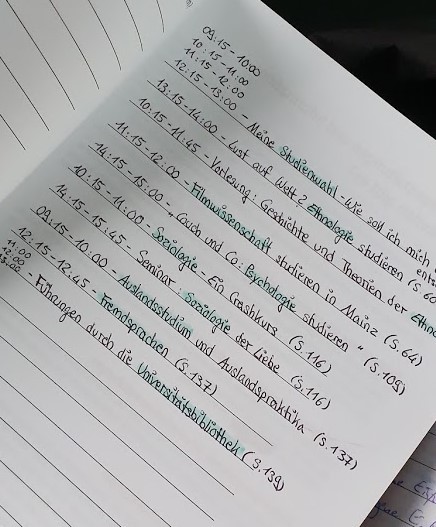 09:15-10:00
10:15-11:00
11:15-12:00
12:15-13:00 - Meine Studienwahl - Wie soll ich mich
13:15-14:00 - Lust auf Welt? Ethnologie studieren (S. 60
10:15-11:45 - Vorlesung: Geschichte und Theorien der Ethno
11:15-12:00 - Filmwissenschaft studieren in Mainz (S. 64)
14:15-15:00 - „Couch und Co: Psychologie studieren" (S. 109)
10:15-11:00 - Soziologie - Ein Crashkurs (S. 116)
14:15-15:45 - Seminar: Soziologie der Liebe (S. 116)
09:15-10:00 - Auslandsstudium und Auslandspraktika (S. 137)
12:15-12:45 - Fremdsprachen (S. 137)
11:00
12:00
13:00 - Führungen durch die Universitätsbibliothek (S. 139)